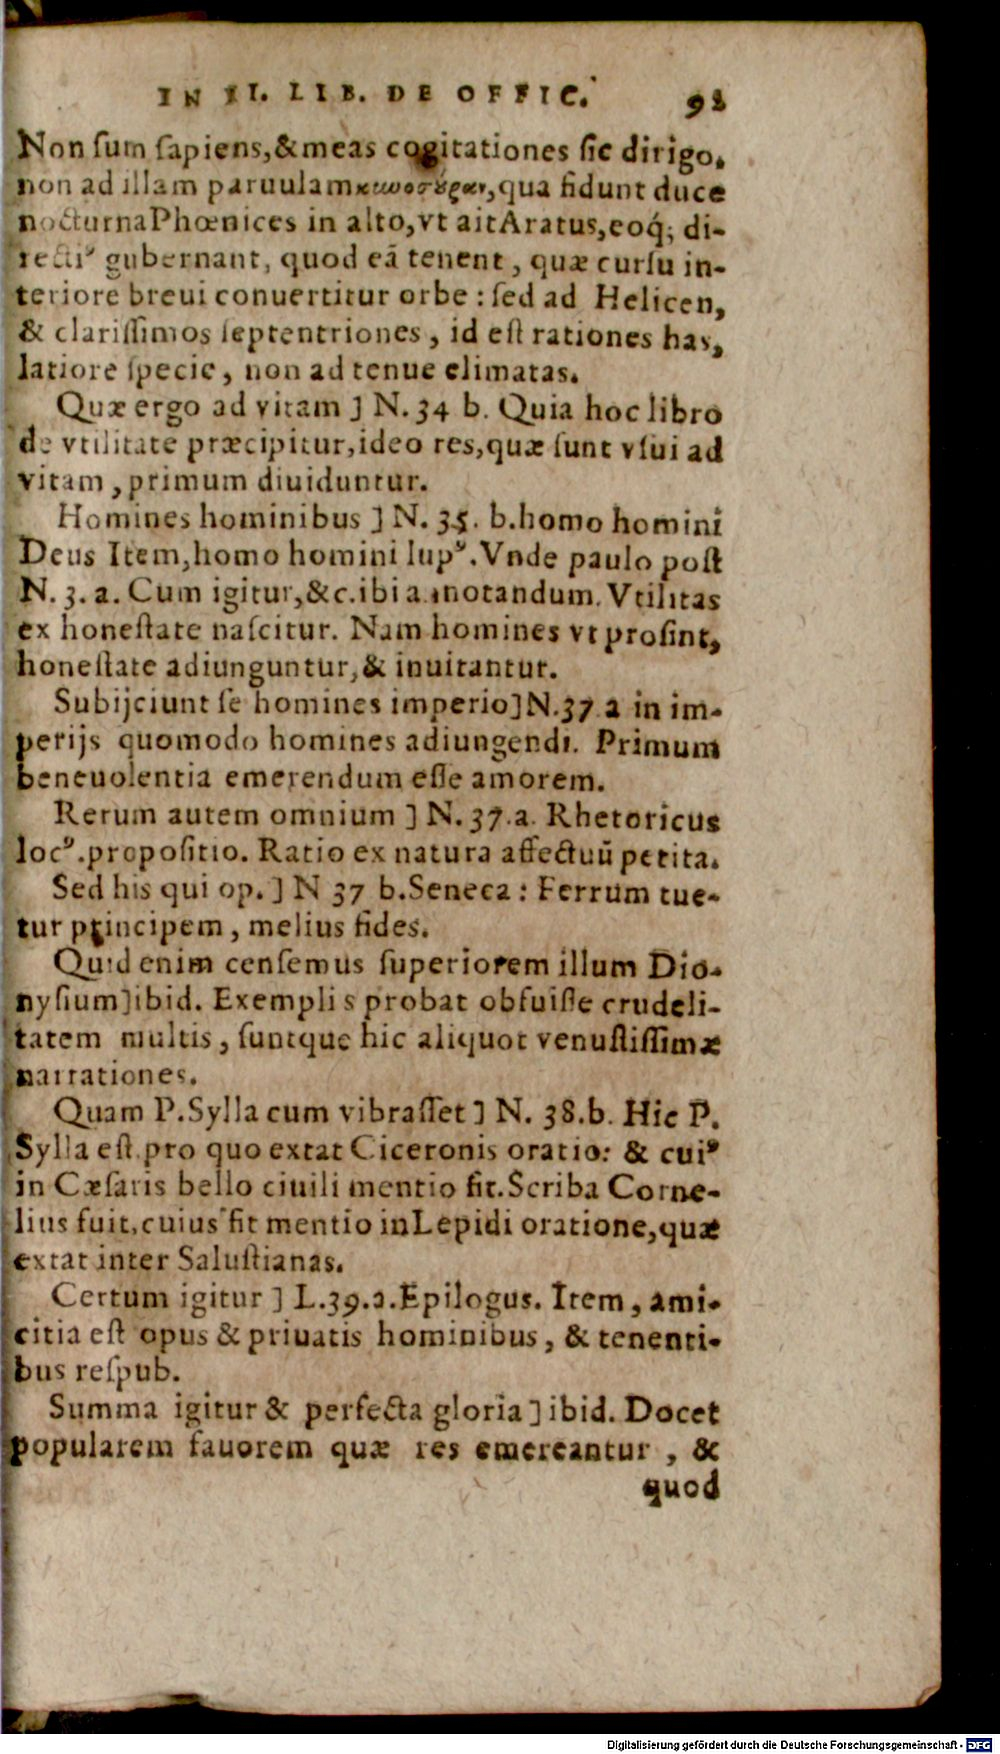 IN II. LIB. DE OFFIC. 92
Non ſum ſapiens,&meas cogitationes ſic dirigo,
non ad illam paruulam κυνοσȣ́ραν,qua fidunt duce
nocturnaPhœnices in alto,vt aitAratus,eoq́; di-
rectiꝰ gubernant, quod eã tenent, quæ curſu in-
teriore breui conuertitur orbe : ſed ad Helicen,
& clariſſimos ſeptentriones, id eſt rationes has,
latiore ſpecie, non ad tenue elimatas.
Quæ ergo ad vitam ] N. 34 b. Quia hoc libro
de vtilitate præcipitur,ideo res,quæ ſunt vſui ad
vitam ,primum diuiduntur.
Homines hominibus ] N. 35. b.homo homini
Deus Item,homo homini lupꝰ.Vnde paulo poſt
N. 3. a. Cum igitur,&c.ibi a. notandum. Vtilitas
ex honeſtate naſcitur. Nam homines vt proſint,
honeſtate adiunguntur,& inuitantur.
Subijciunt ſe homines imperio]N.37.a in im-
perijs quomodo homines adiungendi. Primum
beneuolentia emerendum eſſe amorem.
Rerum autem omnium ] N. 37.a. Rhetoricus
locꝰ.propoſitio. Ratio ex natura affectuũ petita.
Sed his qui op. ] N 37 b.Seneca : Ferrum tue-
tur principem, melius fides.
Quid enim cenſemus ſuperiorem illum Dio-
nyſium]ibid. Exemplis probat obfuiſſe crudeli-
tatem multis, ſuntque hic aliquot venuſtiſſimæ
narrationes.
Quam P.Sylla cum vibraſſet ] N. 38.b. Hic P.
Sylla eſt.pro quo extat Ciceronis oratio: & cuiꝰ
in Cæſaris bello ciuili mentio fit.Scriba Corne-
lius fuit,cuius fit mentio inLepidi oratione,quæ
extat inter Saluſtianas.
Certum igitur ] L.39.a.Epilogus. Item, ami-
citia eſt opus & priuatis hominibus, & tenenti-
bus reſpub.
Summa igitur & perfecta gloria ] ibid. Docet
popularem fauorem quæ res emereantur , &
quod
Digitalisierung gefördert durch die Deutsche Forschungsgemeinschaft - DFG